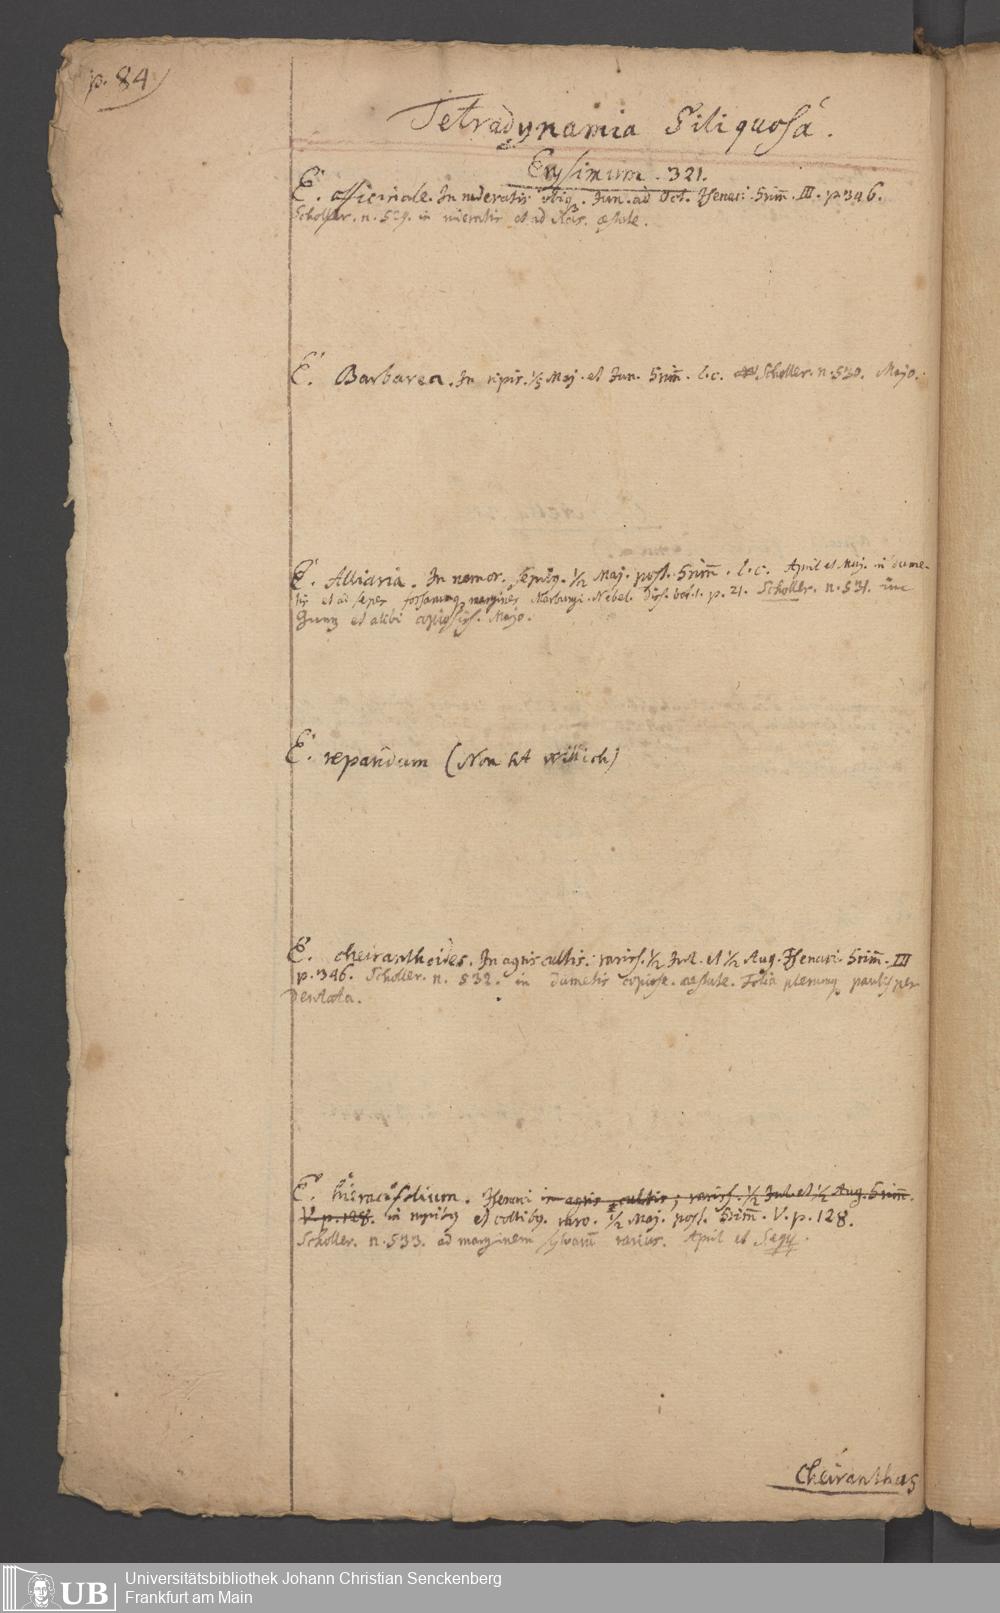 p. 84
Tetradynamia Siliquosa.
Erysimum. 321.
E. officinale. In ruderatis ubiq. Jun. ad Oct. Isenaci. Grim̅. III. p 346.
Scholler. n. 529. in ruderatis et ad vias. æstate.
E. Barbarea. In ripis. 1/5 Maj. et Jun. Grim̅. l. c. Scholler. n. 530. Majo.
E. Alliaria. In nemor. sepib9. 1/2 Maj. post. Grim̅. l. c. April et Maj. in dume-
tis et ad sepes fossarumq margines Marburgi. Nebel. Diss. bot. 1. p. 21. Scholler. n. 531.
et alibi copiosiss. Majo.
E. repandum (Non ht Willich)
E. cheiranthoides. In agris cultis: rariss. 1/2 Jul. et 1/2 Aug. Isenaci. Grim̅. III
p. 346. Scholler. n. 532. in dumetis copiose. aestate. Folia plerumq paulis per
Dentata.
E. hieracifolium. Isenaci in agris cultis; rariss. 1/2 Jul. et 1/2 Aug. Grim̅.
V. p. 128. in rupib9 et collib9. raro. 1/2 Maj. post. Grim̅. V. p. 128.
Scholler. n. 533. ad marginem sylvaru̅ rarius. April et Seqq.
Cheiranthus
UB
Universitätsbibliothek Johann Christian Senckenberg
Frankfurt am Main